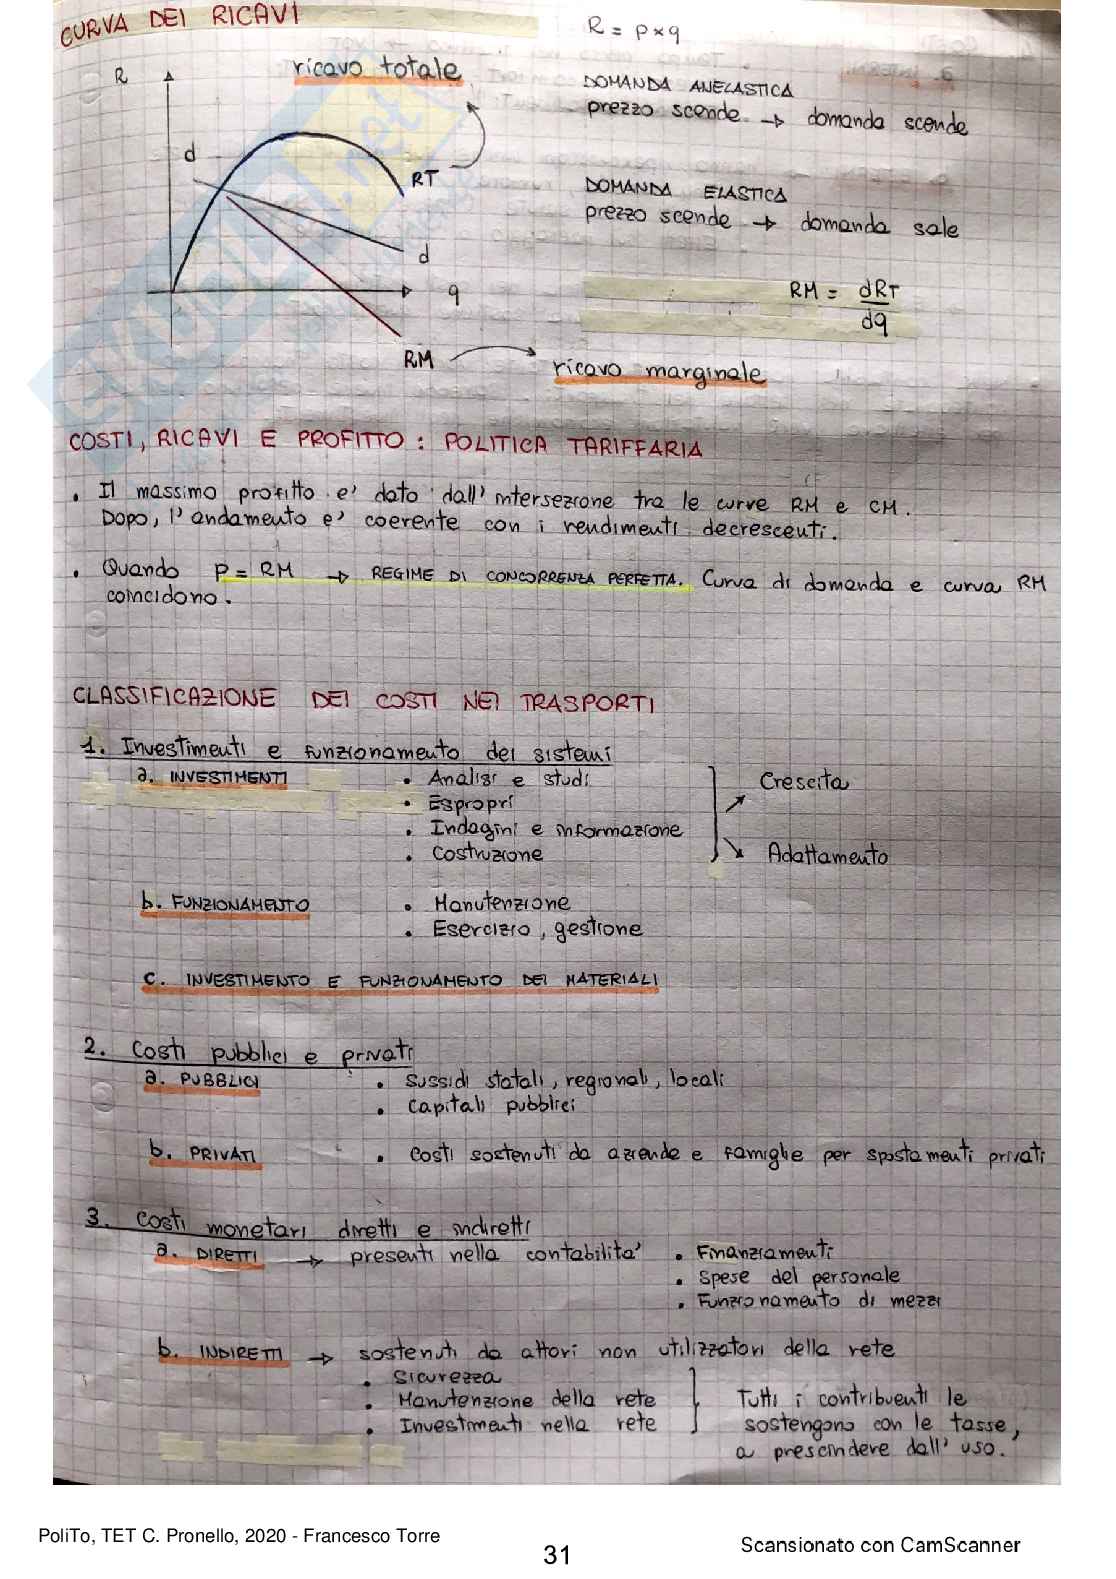 CURVA DEI RICAVI
R = p×q
R
ricavo totale
DOMANDA ANELASTICA
prezzo scende → domanda scende
d
RT
DOMANDA ELASTICA
prezzo scende → domanda sale
d
q
RM = dRT
dq
RM
ricavo marginale
COSTI, RICAVI E PROFITTO : POLITICA TARIFFARIA
• Il massimo profitto e' dato dall'intersezione tra le curve RM e CM.
Dopo, l'andamento e' coerente con i rendimenti decrescenti.
• Quando P = RM → REGIME DI CONCORRENZA PERFETTA. Curva di domanda e curva RM
coincidono.
CLASSIFICAZIONE DEI COSTI NEI TRASPORTI
1. Investimenti e funzionamento dei sistemi
a. INVESTIMENTI • Analisi e studi
Crescita
• Espropri
• Indagini e informazione
• Costruzione
Adattamento
b. FUNZIONAMENTO • Manutenzione
• Esercizio, gestione
c. INVESTIMENTO E FUNZIONAMENTO DEI MATERIALI
2. Costi pubblici e privati
a. PUBBLICI • Sussidi statali, regionali, locali
• Capitali pubblici
b. PRIVATI • Costi sostenuti da aziende e famiglie per spostamenti privati
3. Costi monetari diretti e indiretti
a. DIRETTI → presenti nella contabilita' • Finanziamenti
• Spese del personale
• Funzionamento di mezzi
b. INDIRETTI → sostenuti da attori non utilizzatori della rete
• Sicurezza
• Manutenzione della rete
• Investimenti nella rete
Tutti i contribuenti le
sostengono con le tasse,
a prescindere dall'uso.
PoliTo, TET C. Pronello, 2020 - Francesco Torre
31
Scansionato con CamScanner